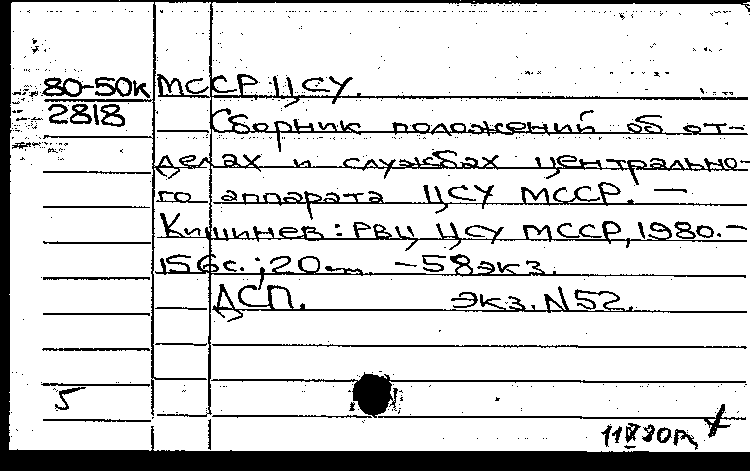 80-50к МССР ЦСУ.
2818 Сборник положений об от-
делах и службах центрально-
го аппарата ЦСУ МССР. —
Кишинев: РВЦ ЦСУ МССР, 1980. —
156с.; 20см. — 58экз.
ДСП. экз. N52.
5